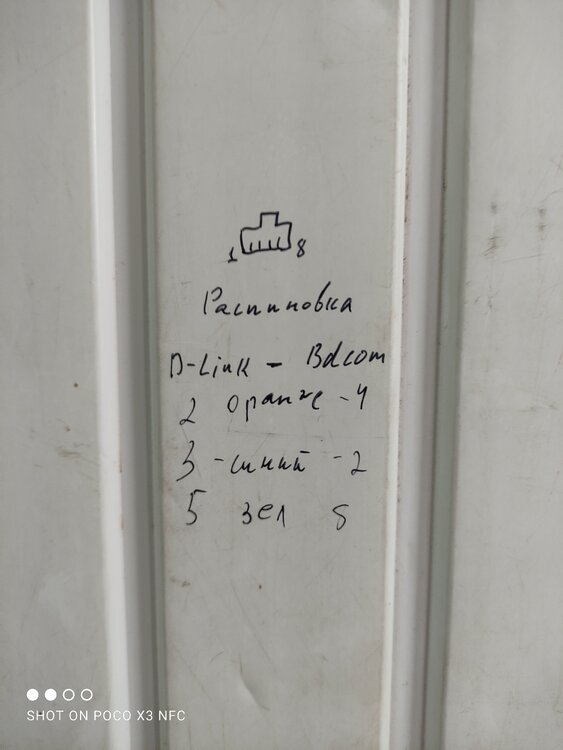 1 8
Распиновка
D-Link - Bdcom
2 оранже - 4
3 - синий - 2
5 зел 8
SHOT ON POCO X3 NFC